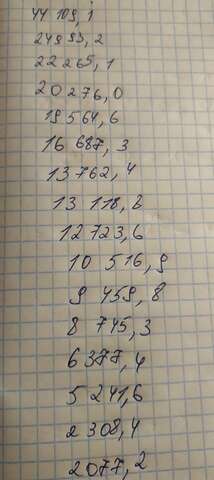 44 109, 1
24993, 2
22265, 1
20276, 0
19564, 6
16 687, 3
13762, 4
13 118, 2
12723, 6
10 516, 9
9 459, 8
8 745, 3
6377, 4
5 241, 6
2308, 4
2077, 2